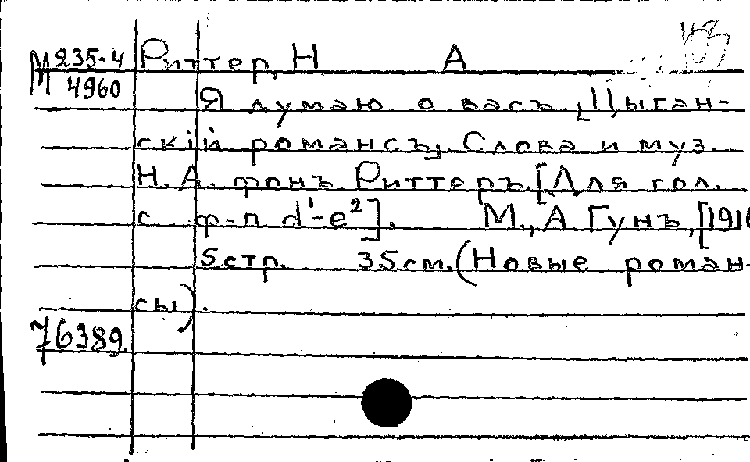 М 235-4 Риттер, Н А
4960
Я думаю о васъ, Цыган-
скій романсъ, Слова и муз.
Н. А. фонъ Риттеръ. [Для гол.
с ф-п d'-e²]. М., А Гунъ, [1916
5 стр. 35 см. (Новые роман-
сы).
76389